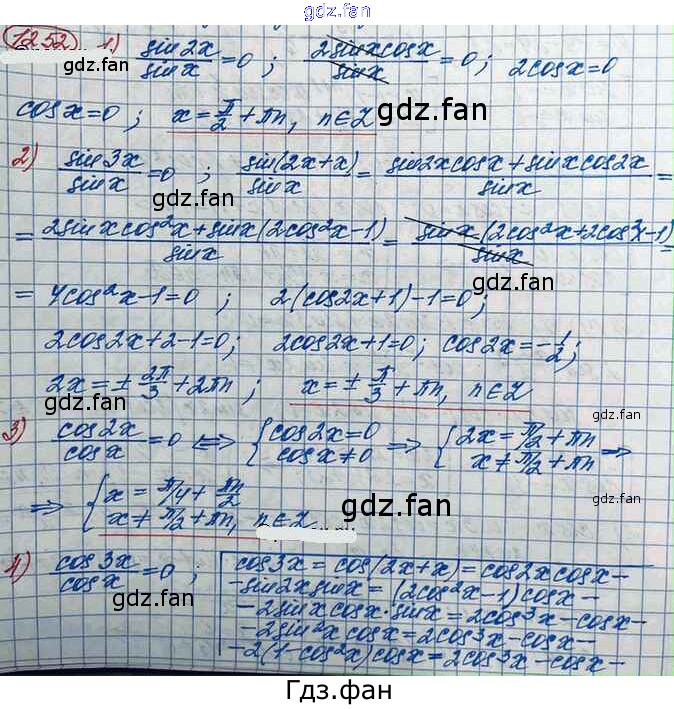 gdz.fan
1252 1) sin2x/sinx = 0 ; 2sinxcosx/sinx = 0 ; 2cosx=0
gdz.fan
cosx=0 ; x = π/2 + πn, n∈Z
gdz.fan
2) sin3x/sinx = 0 ; sin(2x+x)/sinx = sin2xcosx + sinxcos2x/sinx =
gdz.fan
= 2sinxcos²x + sinx(2cos²x-1)/sinx = sinx(2cos²x+2cos²x-1)/sinx =
gdz.fan
= 4cos²x-1=0 ; 2(cos2x+1)-1=0 ;
2cos2x+2-1=0; 2cos2x+1=0; cos2x=-1/2;
2x=± 2π/3 + 2πn ; x=± π/3 + πn, n∈Z
gdz.fan
3) cos2x/cosx = 0 ⇔ { cos2x=0 cosx≠0 ⇒ { 2x=π/2+πn x≠π/2+πn ⇒
gdz.fan
⇒ { x=π/4+πn/2 x≠π/2+πn, n∈Z
gdz.fan
4) cos3x/cosx = 0 ; cos3x = cos(2x+x) = cos2xcosx-
-sin2xsinx = (2cos²x-1)cosx-
gdz.fan
-2sinxcosx·sinx = 2cos³x-cosx-
-2sin²xcosx = 2cos³x-cosx-
gdz.fan
-2(1-cos²x)cosx = 2cos³x-cosx-
Гдз.фан